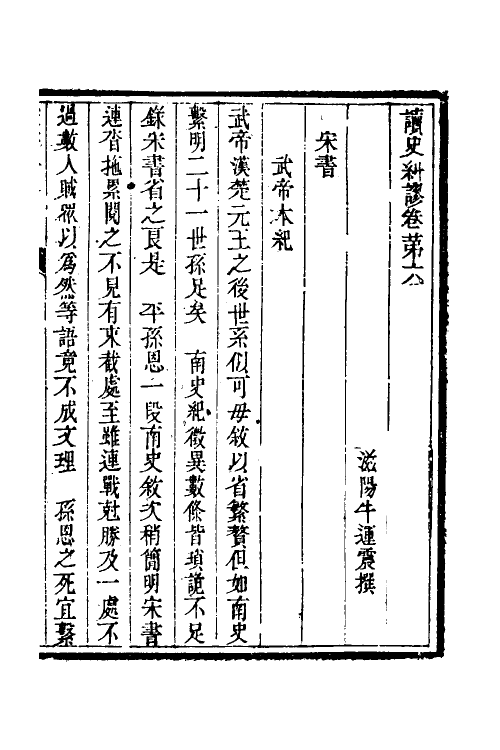 讀史糾謬卷第六
滋陽牛運震撰
宋書
武帝本紀
武帝漢楚元王之後世系似可毋敘以省繁贅但如南史
繫明二十一世孫足矣　南史紀徵異數條皆瑣詭不足
錄宋書省之良是　平孫恩一段南史敘次稍簡明宋書
連沓拖累閱之不見有束截處至雖連戰尅勝及一處不
過數人職摧以爲然等語竟不成文理　孫恩之死宜繫